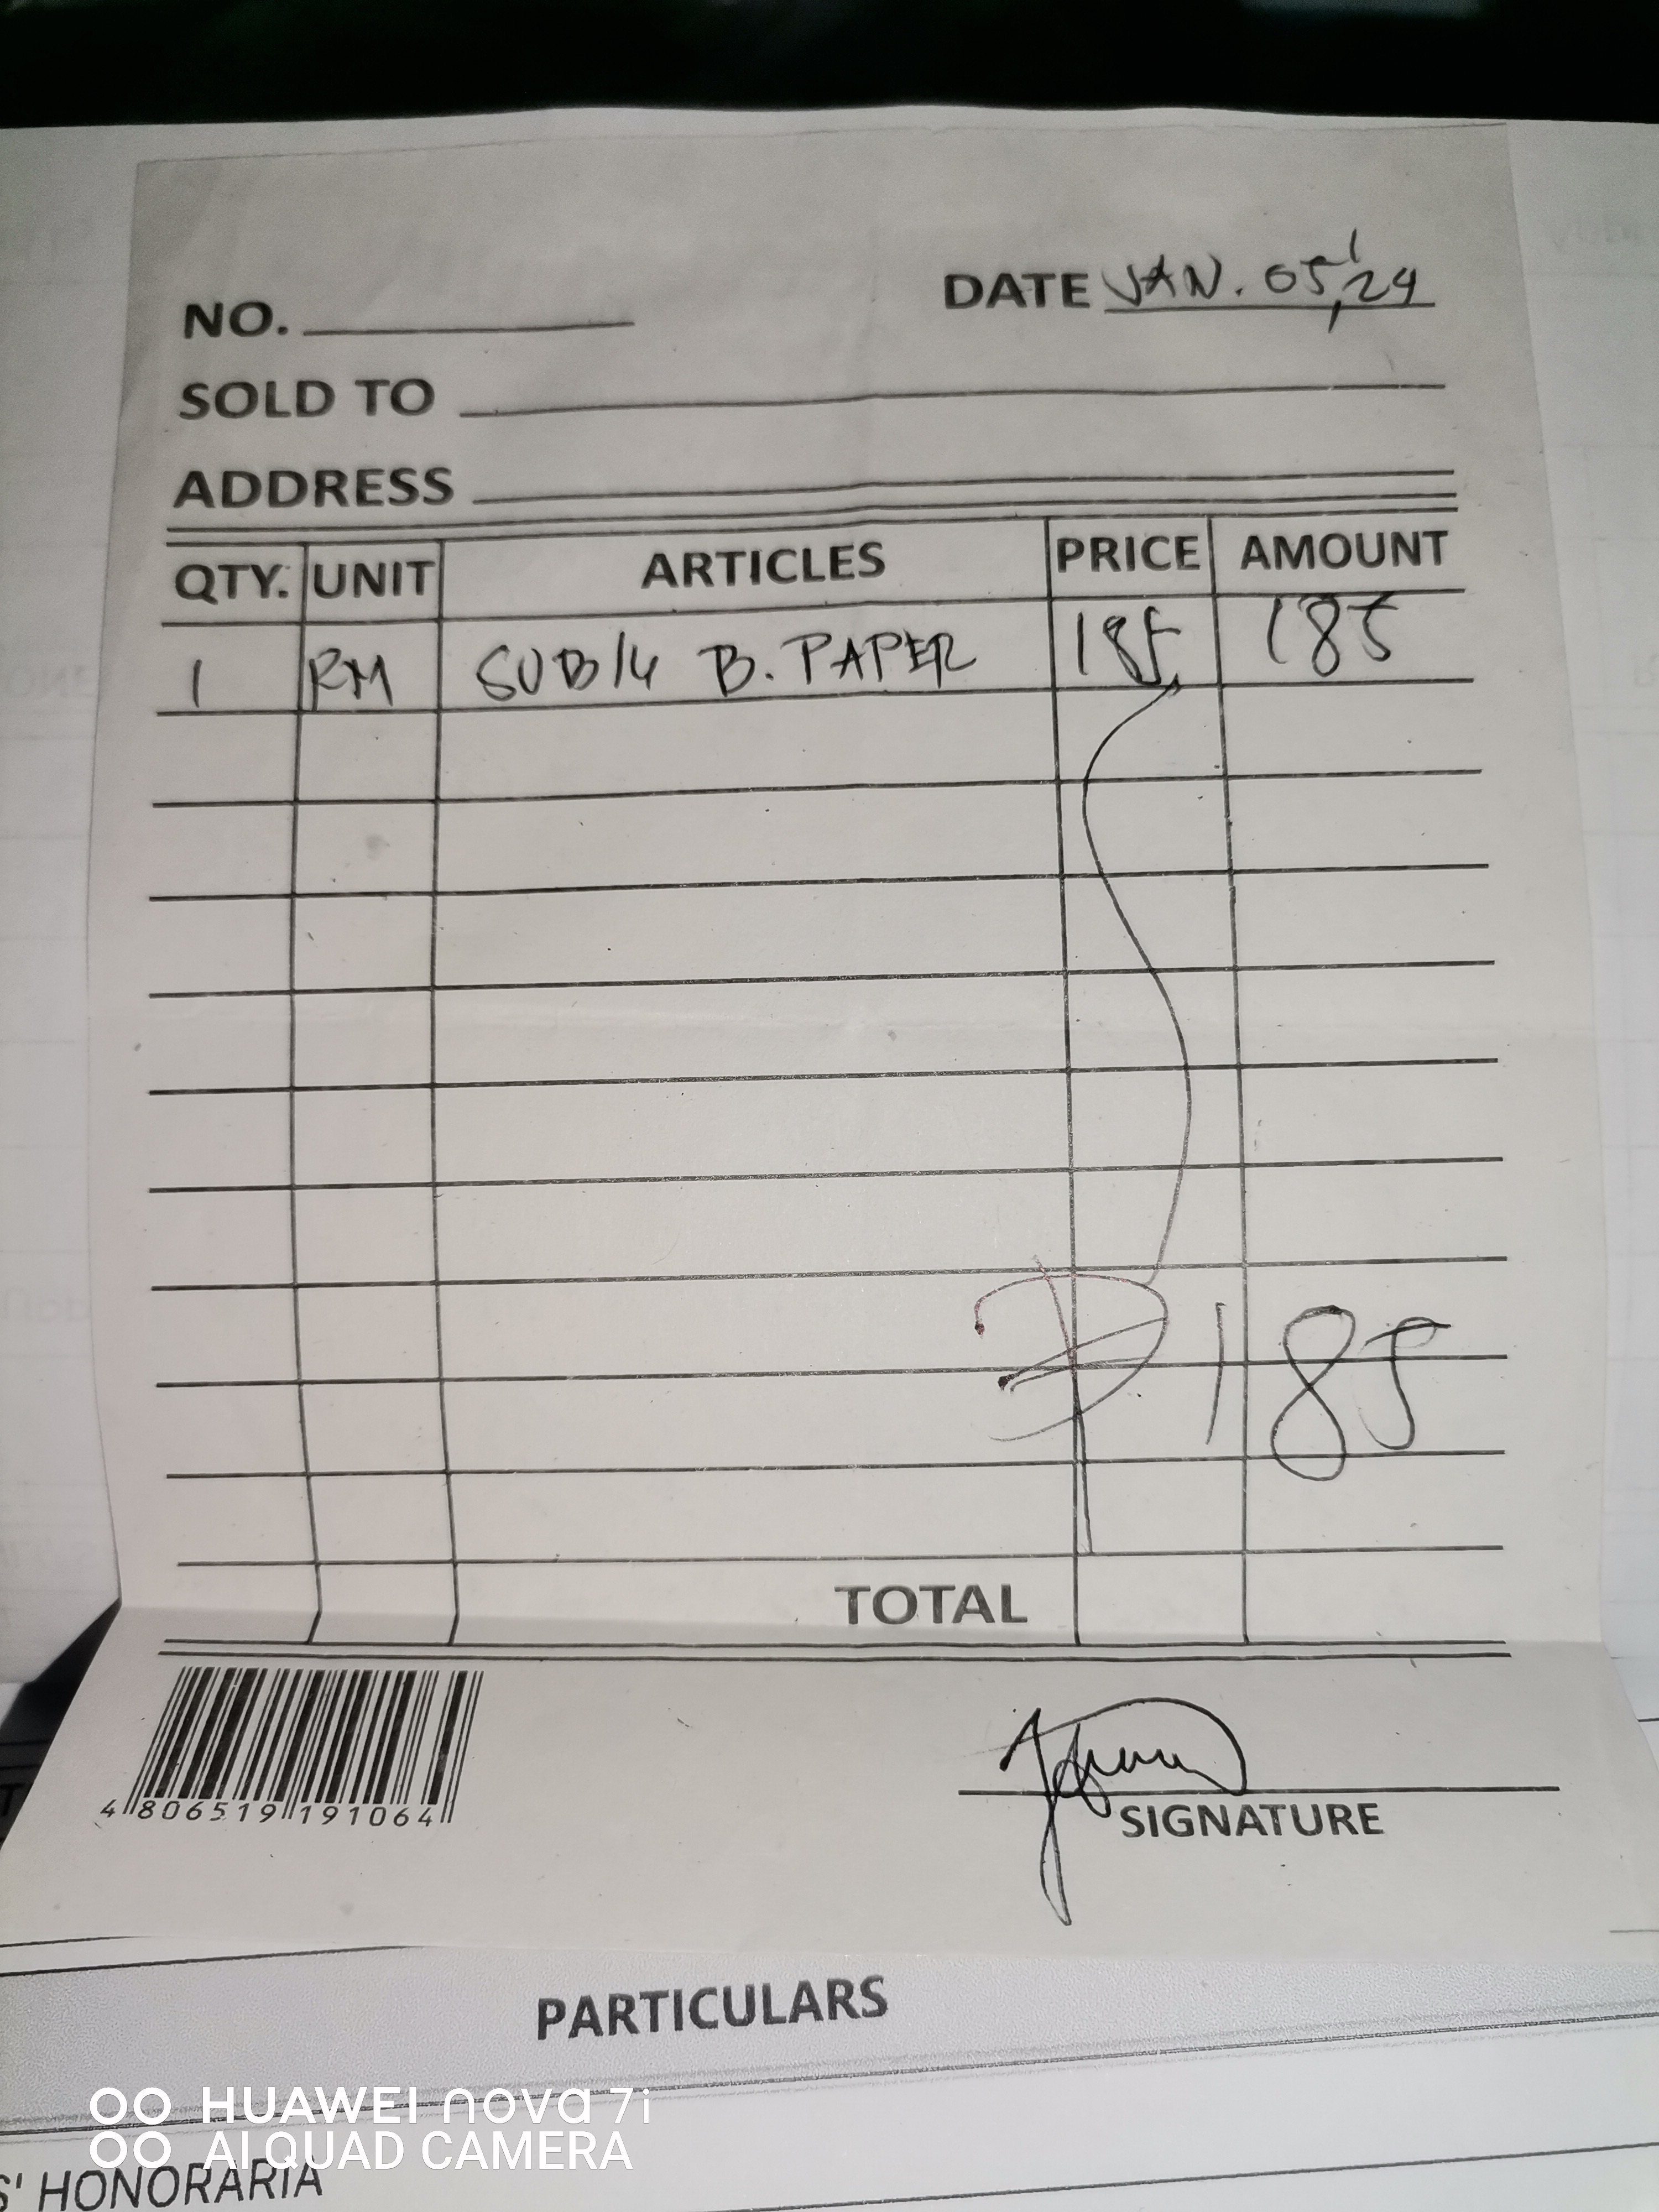 NO. DATE JAN. 05, '24
SOLD TO
ADDRESS
QTY. UNIT ARTICLES PRICE AMOUNT
1 RM SUB14 B. PAPER 185 185
₱ 185
TOTAL
4 806519 191064
SIGNATURE
PARTICULARS
HUAWEI nova 7i
AI QUAD CAMERA
S' HONORARIA